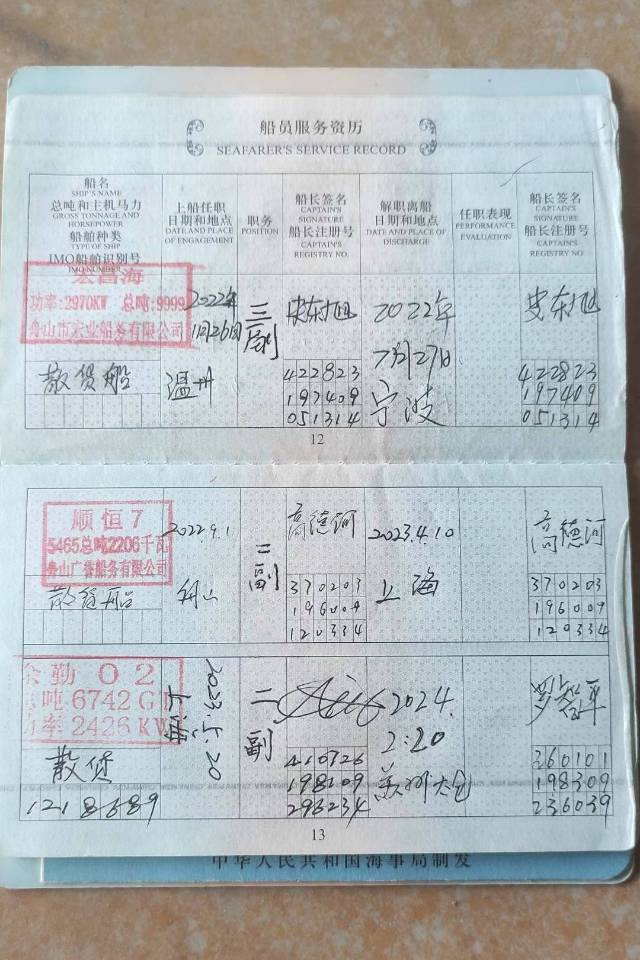 船员服务资历
SEAFARER'S SERVICE RECORD
船名
SHIP'S NAME
总吨和主机马力
GROSS TONNAGE AND
HORSEPOWER
船舶种类
TYPE OF SHIP
IMO船舶识别号
IMO NUMBER
上船任职
日期和地点
DATE AND PLACE
OF ENGAGEMENT
职务
POSITION
船长签名
CAPTAIN'S
SIGNATURE
船长注册号
CAPTAIN'S
REGISTRY NO.
解职离船
日期和地点
DATE AND PLACE OF
DISCHARGE
任职表现
PERFORMANCE
EVALUATION
船长签名
CAPTAIN'S
SIGNATURE
船长注册号
CAPTAIN'S
REGISTRY NO.
宏昌海
功率:2970KW 总吨:9999
舟山市宏业船务有限公司
散货船
2022年
1月26日
温州
三副
史东旭
422823
197409
051314
2022年
7月27日
宁波
史东旭
422823
197409
051314
12
顺恒7
5465总吨2206千瓦
舟山广誉船务有限公司
散货船
2022.9.1
舟山
二副
高德河
370203
196009
120334
2023.4.10
上海
高德河
370203
196009
120334
勤02
吨6742GT
率2426KW
散货
1218689
2023.5.20
二副
410726
198109
296234
2024.
2:20
苏州太仓
罗智平
360101
198309
236039
13
中华人民共和国海事局制发